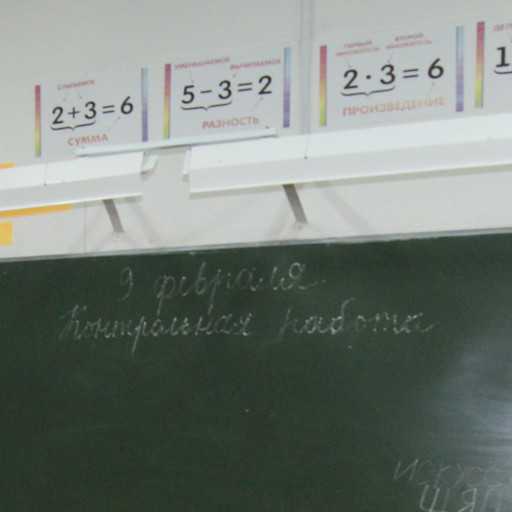 СЛАГАЕМОЕ
2+3=6
СУММА
УМЕНЬШАЕМОЕ ВЫЧИТАЕМОЕ
5-3=2
РАЗНОСТЬ
ПЕРВЫЙ МНОЖИТЕЛЬ ВТОРОЙ МНОЖИТЕЛЬ
2·3=6
ПРОИЗВЕДЕНИЕ
9 февраля
Контрольная работа